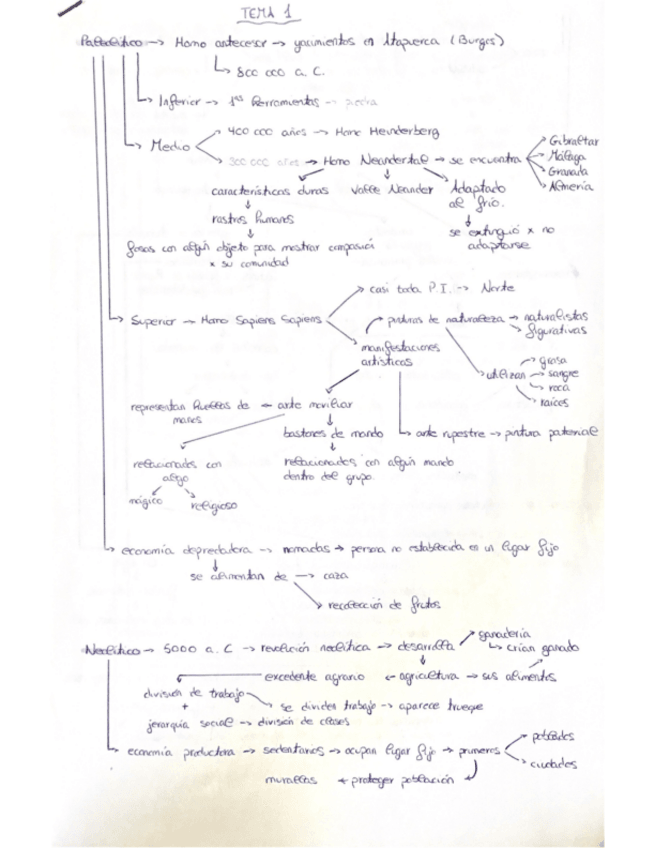 TEMA 1
Paleolítico → Homo antecesor → yacimientos en Atapuerca (Burgos)
↳ 800 000 a. C.
Inferior → 1as herramientas → piedra
Medio
400 000 años → Homo Heinderberg
300 000 años → Homo Neandertal → se encuentra
Gibraltar
Málaga
Granada
Almería
características duras
Valle Neander
Adaptado al frío.
rastros humanos
se extinguió x no adaptarse
fosas con algún objeto para mostrar compasión x su comunidad
Superior → Homo Sapiens Sapiens
casi toda P.I. → Norte
manifestaciones artísticas
pinturas de naturaleza → naturalistas
figurativas
utilizan
grasa
sangre
roca
raíces
representan huellas de manos ← arte moviliar
bastones de mando
arte rupestre → pintura paterial
relacionados con algo
mágico
religioso
relacionados con algún mando dentro del grupo.
economía depredadora → nomadas → persona no establecida en un lugar fijo
se alimentan de → caza
recolección de frutos
Neolítico → 5000 a. C → revolución neolítica → desarrolla
ganadería
↳ crían ganado
excedente agrario ← agricultura → sus alimentos
división de trabajo
se dividen trabajo → aparece trueque
+
jerarquía social → división de clases
economía productora → sedentarios → ocupan lugar fijo → primeros
poblados
ciudades
murallas ← proteger población